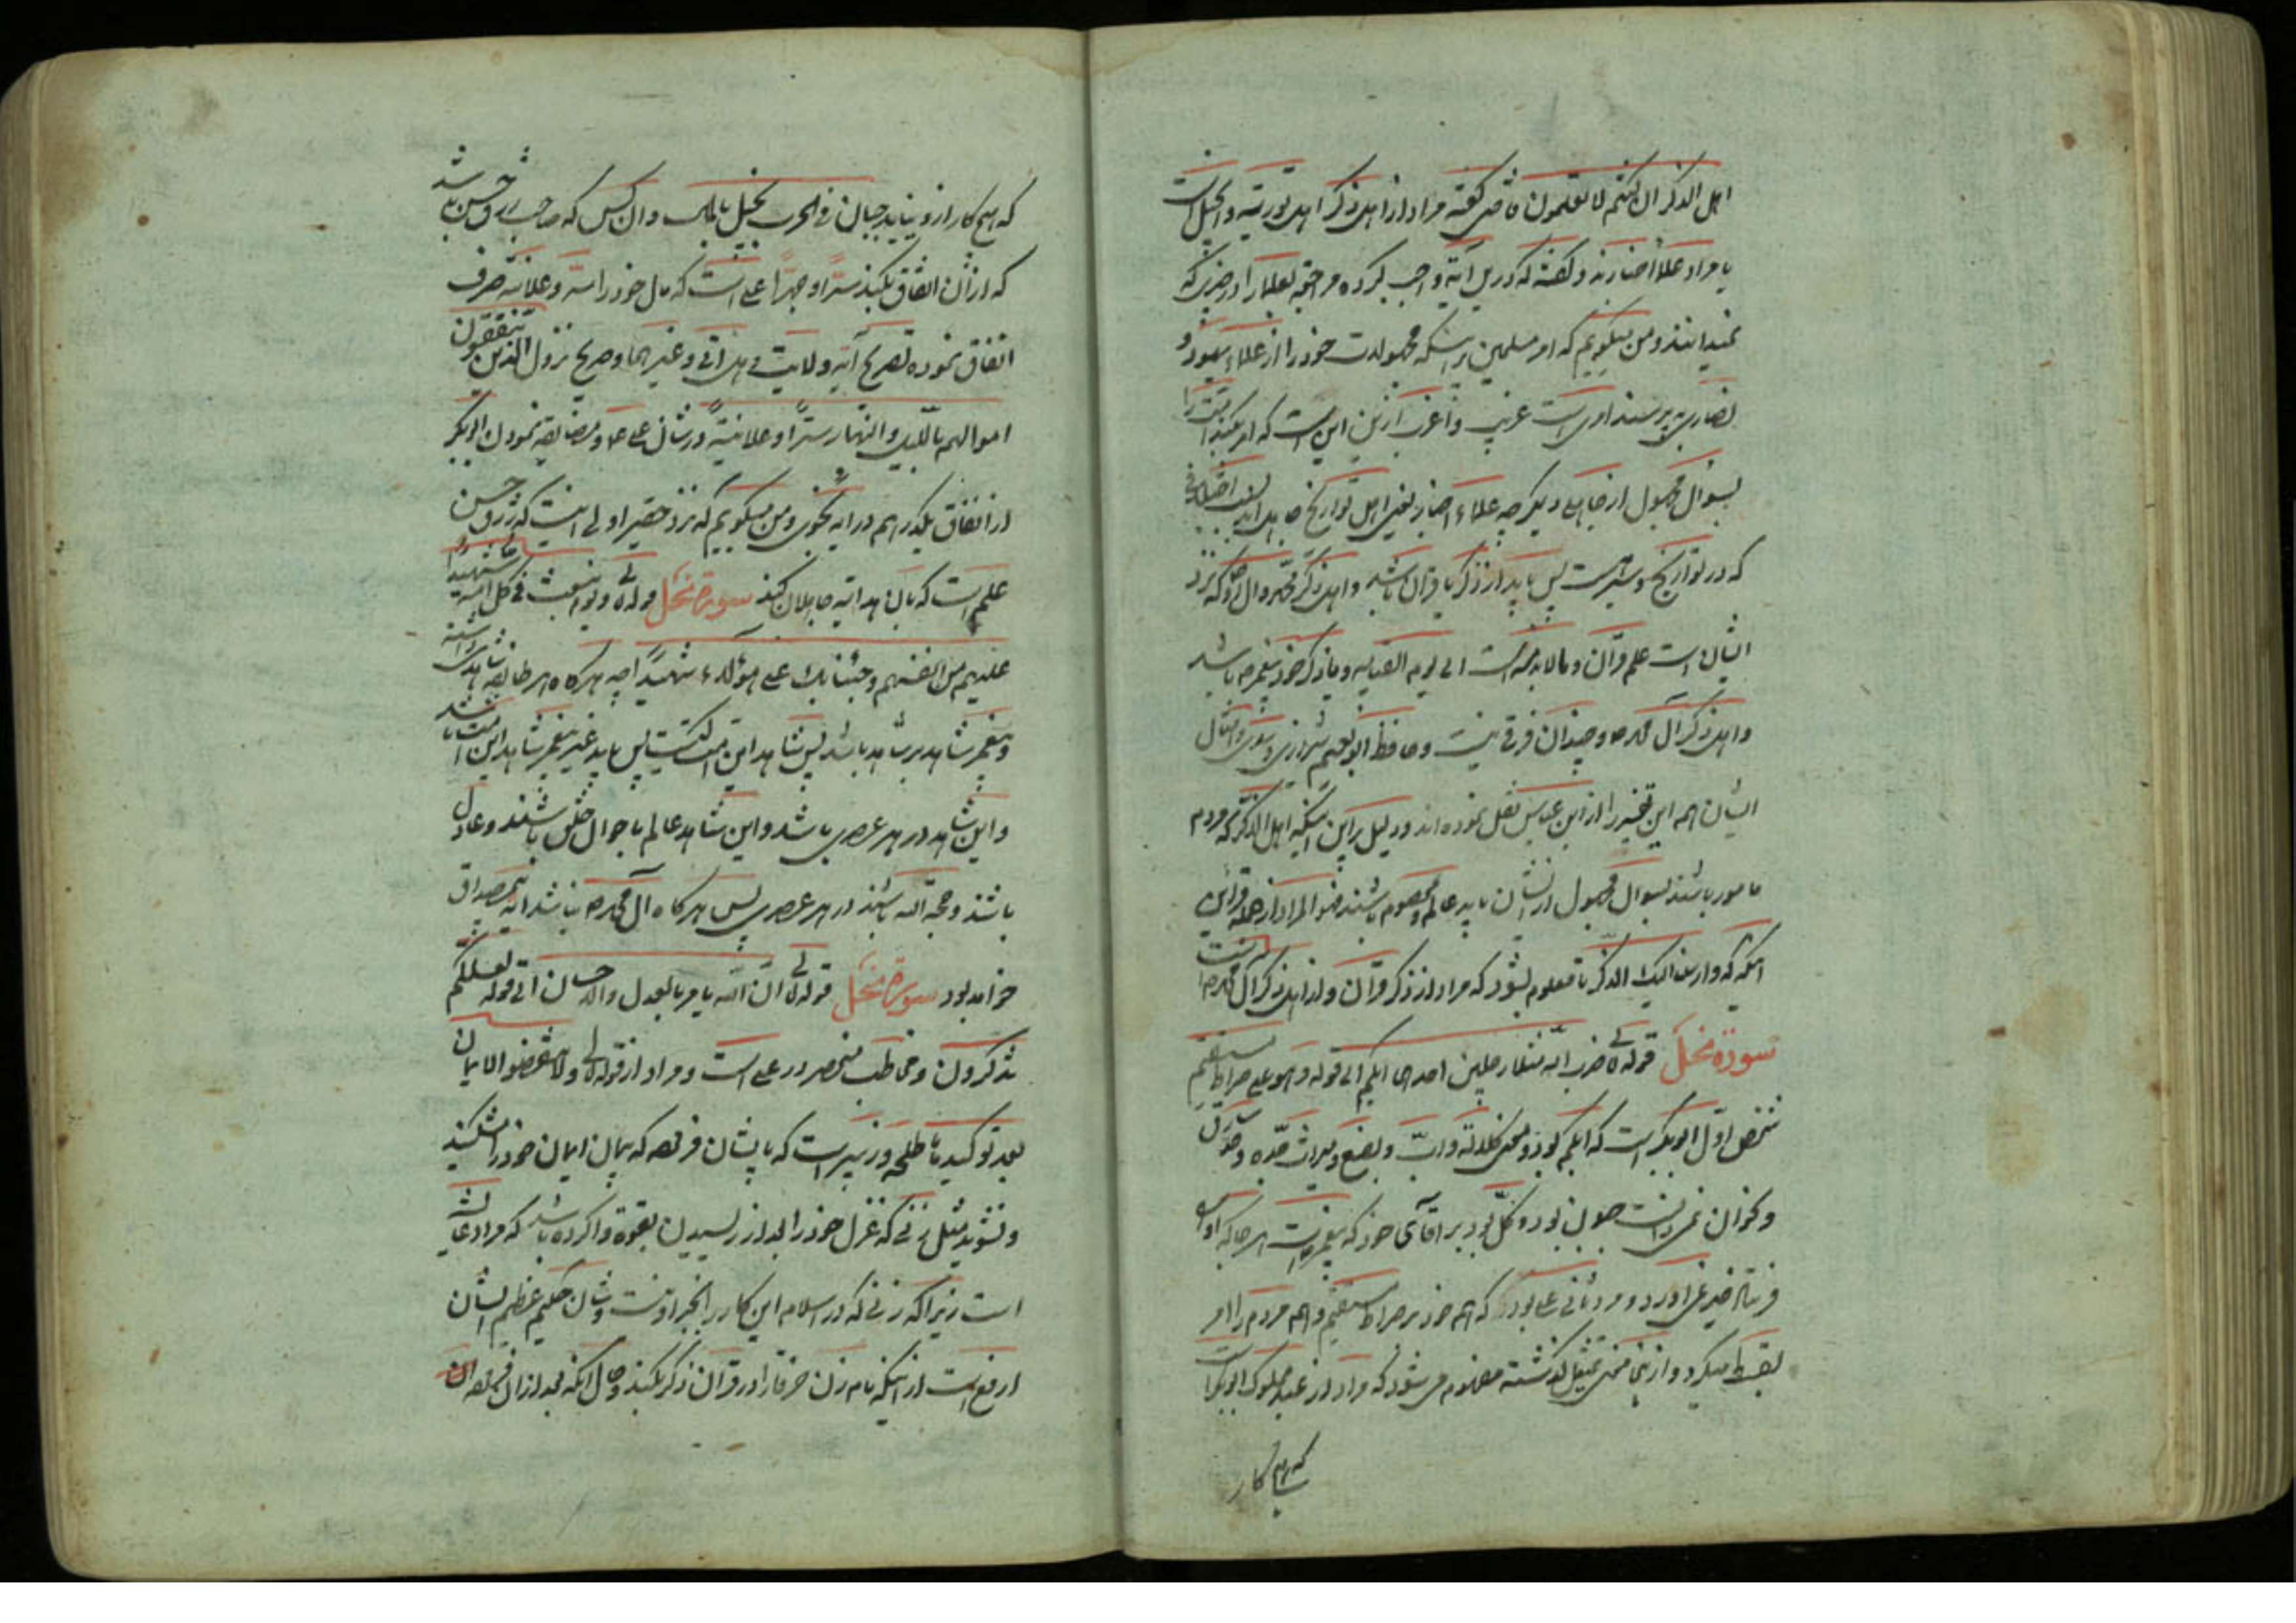 اهل الذکر ان کنتم لا تعلمون قاضی گفته مراد از اهل ذکر اهل توریة و انجیل است
یا مراد علماء اخبارند و گفته که درین آیة واجب کرده مراجعة بعلما را در چیزی که
نمیدانند و من میگویم که امر مسلمین باینکه مجهولات خود را از علماء یهود و
نصاری بپرسند امری است غریب و اغرب ازین این است که امر بکند امت را
بسؤال مجهول از جاهل دیگر چه علماء اخبار یعنی اهل تواریخ جاهل اند
که در تواریخ و سیر است پس باید از ذکر یا قرآن باشد و اهل ذکر محمد و آل او که نزد
ایشان است علم قرآن و الی یوم القیامه و یا ذکر خود پیغمبر ص باشد
و اهل ذکر آل محمد ص و چندان فرقی نیست و حافظ ابو نعیم شیرازی و امثال
ایشان همه این تفسیر را از ابن عباس نقل نموده اند و دلیل بر این اینکه اهل الذکر که مردم
مامور باشند بسوال مجهول از ایشان باید عالم و معصوم باشند
آنکه که و انزلنا الیک الذکر تا معلوم بشود که مراد از ذکر قرآن و از اهل ذکر آل محمد ص است
سورة نحل قوله تعالی ضرب الله مثلا رجلین احدهما ابکم الی قوله و هو علی صراط مستقیم
شخص اول ابوبکر است که ابکم بود و معنی کلاله و اب و بضع و میراث جده و
و نمی دانست چون بود و کل بود بر آقای خود که پیغمبر است هر جا که او را
فرستاد خیر نیاورد و مرد ثانی علی بود که هم خود بر صراط مستقیم و هم مردم را امر
بقسط میکرد و از معنی تمثیل گذشته مفهوم می شود که مراد از عبد مملوک ابوبکر است
که هیچ کار
که هیچ کار ازو نیاید جبان فی الحرب بخیل بالمال و آن کس که صاحب رزق حسن باشد
که از آن انفاق بکند سرا و جهرا علی است که مال خود را سرا و علانیة صرف
انفاق نموده بتصریح آیه ولایت و هل اتی و غیرهما و صریح نزول الذین ینفقون
اموالهم باللیل و النهار سرا و علانیة در شان علی ع و مضایقه نمودن ابوبکر
از انفاق یکدرهم در آیه نجوی و من میگویم که نزد حقیر اولی اینست که رزق حسن
علم است که بآن هدایة جاهلان کند سورة نحل قوله تعالی و یوم نبعث فی کل امة شهیدا
علیهم من انفسهم و جئنا بک علی هؤلاء شهیدا چه هرگاه هر طایفه شاهدی داشته
و پیغمبر شاهد بر شاهد باشد پس شاهد این امت کیست پس باید غیر پیغمبر شاهد این امت باشد
و این شاهد در هر عصری باشد و این شاهد عالم باحوال خلق باشند و عادل
باشند و حجة الله باشند در هر عصری پس هرگاه آل محمد ص نباشد آیه بیمصداق
خواهد بود سورة نحل قوله تعالی ان الله یامر بالعدل و الاحسان الی قوله لعلکم
تذکرون و مخاطب منحصر در علی است و مراد از قوله تعالی و لا تنقضوا الایمان
بعد توکیدها طلحه و زبیر است که بایشان فرموده که پیمان ایمان خود را مشکنید
و نشوید مثل زنی که غزل خود را بعد از ریسیدن بقوة واکرده باشد که مراد عایشه
است زیرا که زنی که در اسلام این کار را بجز او نیست و شان حکیم عظیم الشان
ارفع است از اینکه نام زن خرقا را در قرآن ذکر بکند و حال آنکه بعد از آن فرموده ان